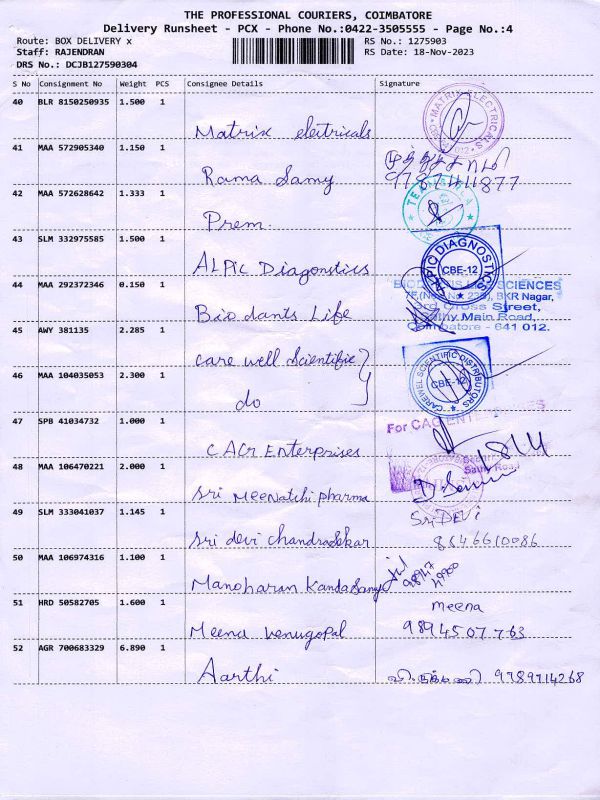 THE PROFESSIONAL COURIERS, COIMBATORE
Delivery Runsheet - PCX - Phone No.:0422-3505555 - Page No.:4
Route: BOX DELIVERY x RS No.: 1275903
Staff: RAJENDRAN RS Date: 18-Nov-2023
DRS No.: DCJB127590304
S No Consignment No Weight PCS Consignee Details Signature
40 BLR 8150250935 1.500 1
Matrix eletricals MATRIX ELECTRICALS
41 MAA 572905340 1.150 1
Rama Samy 9787411877
42 MAA 572628642 1.333 1
Prem.
43 SLM 332975585 1.500 1
ALPIC Diagonstics DIAGNOSTIC CBE-12
44 MAA 292372346 0.150 1
Biodants Life SCIENCES
BKR Nagar,
3rd Cross Street,
Main Road,
Coimbatore - 641 012.
45 AWY 381135 2.285 1
care well Scientific
CAREWELL SCIENTIFIC DISTRIBUTORS CBE-12
46 MAA 104035053 2.300 1
do
47 SPB 41034732 1.000 1
For CAG ENTERPRISES
CAG Enterprises
48 MAA 106470221 2.000 1
Sri Meenatchi pharma
49 SLM 333041037 1.145 1
Sri DEVi
Sri devi chandrasekar 8546610086
50 MAA 106974316 1.100 1
Manoharan Kandasamy
51 HRD 50582705 1.600 1
meena
Meena venugopal 9894507763
52 AGR 700683329 6.890 1
Aarthi 9789714268